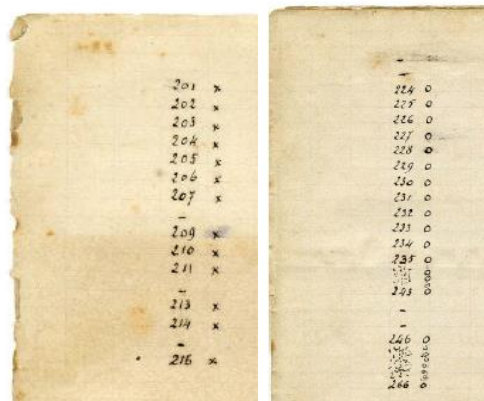 201 x
202 x
203 x
204 x
205 x
206 x
207 x
-
209 x
210 x
211 x
-
213 x
214 x
-
216 x
-
-
224 o
225 o
226 o
227 o
228 o
229 o
230 o
231 o
232 o
233 o
234 o
235 o
243 o
-
-
246 o
266 o